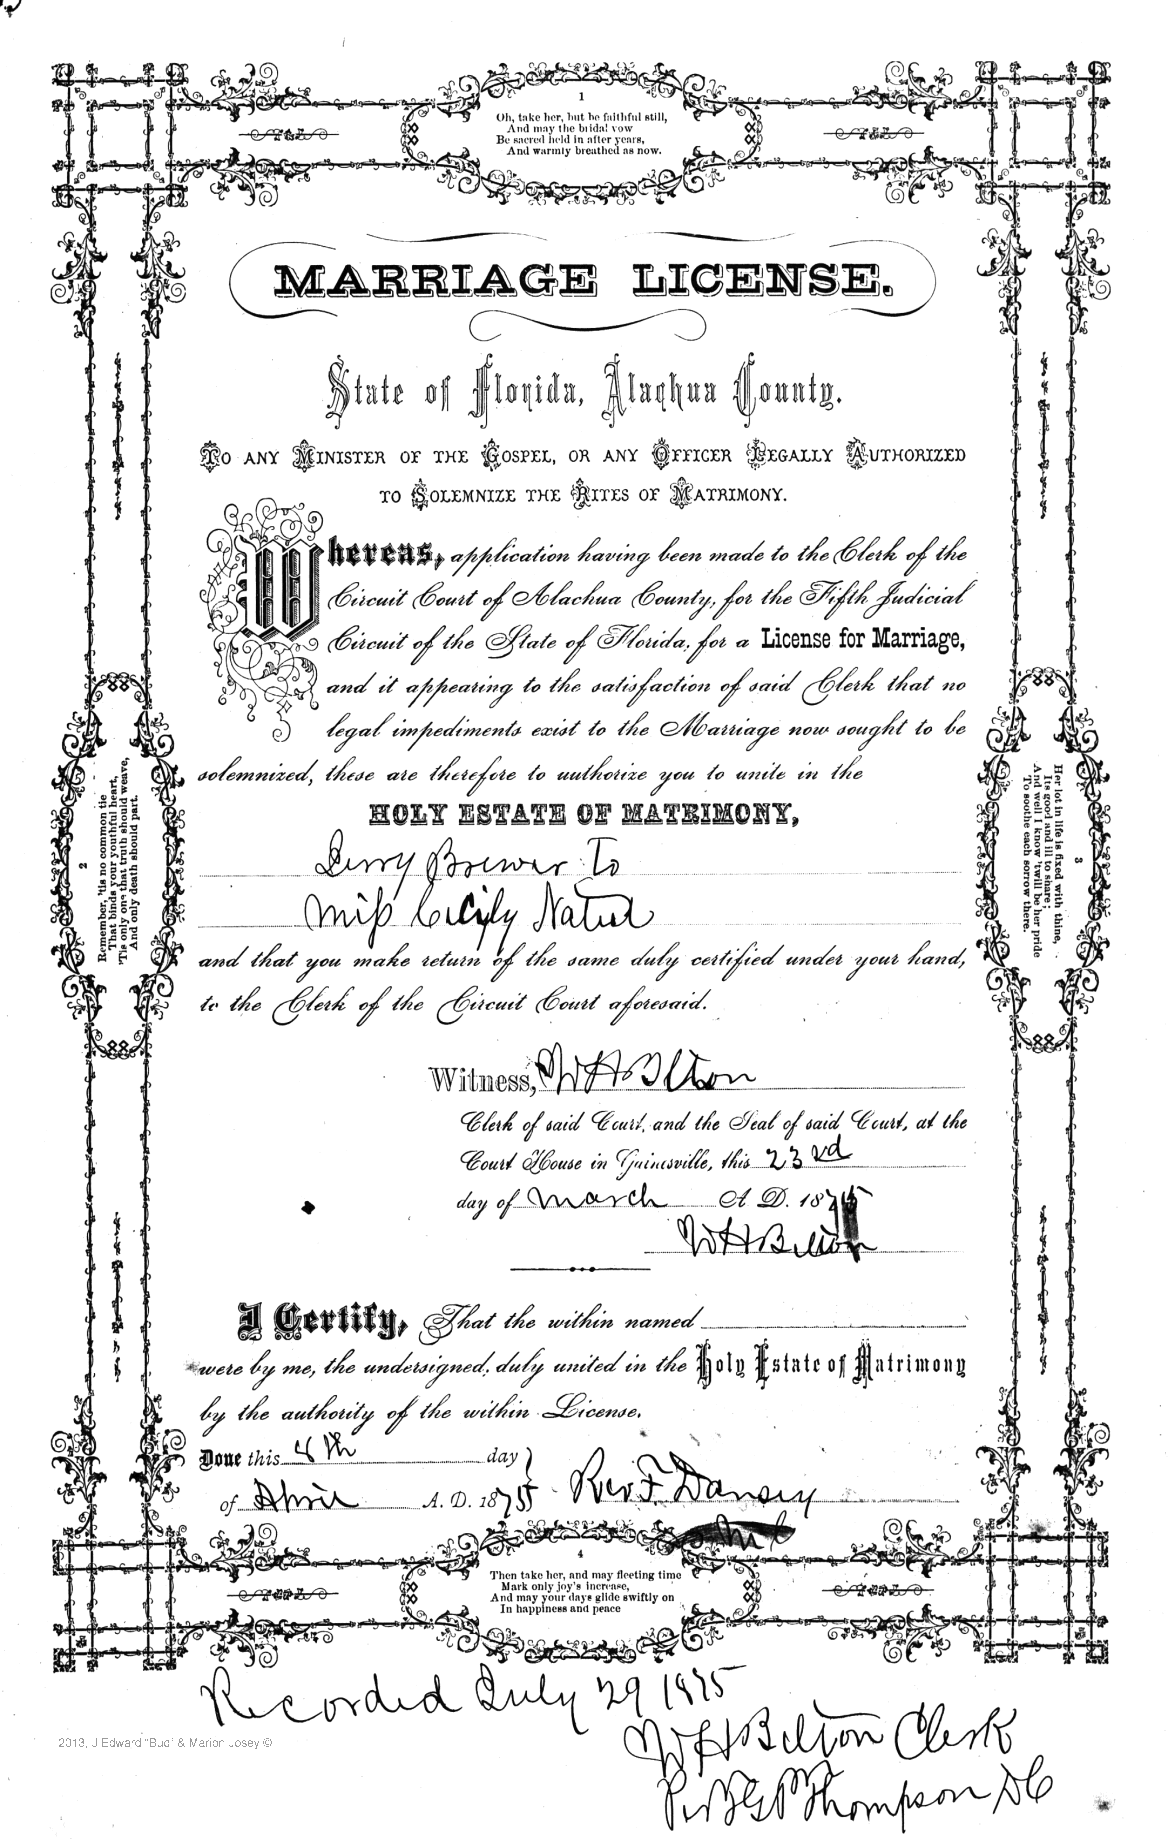 1
Oh, take her, but be faithful still,
And may the bridal vow
Be sacred held in after years,
And warmly breathed as now.
MARRIAGE LICENSE.
State of Florida, Alachua County.
To any Minister of the Gospel, or any Officer Legally Authorized
to Solemnize the Rites of Matrimony.
Whereas, application having been made to the Clerk of the
Circuit Court of Alachua County, for the Fifth Judicial
Circuit of the State of Florida, for a License for Marriage,
and it appearing to the satisfaction of said Clerk that no
legal impediments exist to the Marriage now sought to be
solemnized, these are therefore to authorize you to unite in the
HOLY ESTATE OF MATRIMONY,
Brewer To
Miss Cicily
and that you make return of the same duly certified under your hand,
to the Clerk of the Circuit Court aforesaid.
Witness, W H Belton
Clerk of said Court, and the Seal of said Court, at the
Court House in Gainesville, this 23rd
day of March A. D. 1875
W H Belton
I Certify, That the within named
were by me, the undersigned, duly united in the Holy Estate of Matrimony
by the authority of the within License.
Done this 8th day
of April A. D. 1875 Rev F. Dansey
2
Remember, 'tis no common tie
That binds your youthful heart,
'Tis only one that truth should weave,
And only death should part.
3
Her lot in life is fixed with thine,
Its good and ill to share;
And well I know 'twill be her pride
To soothe each sorrow there.
4
Then take her, and may fleeting time
Mark only joy's increase,
And may your days glide swiftly on
In happiness and peace
Recorded July 29 1875
W H Belton Clerk
Thompson DC
2013, J Edward "Bud" & Marion Josey ©